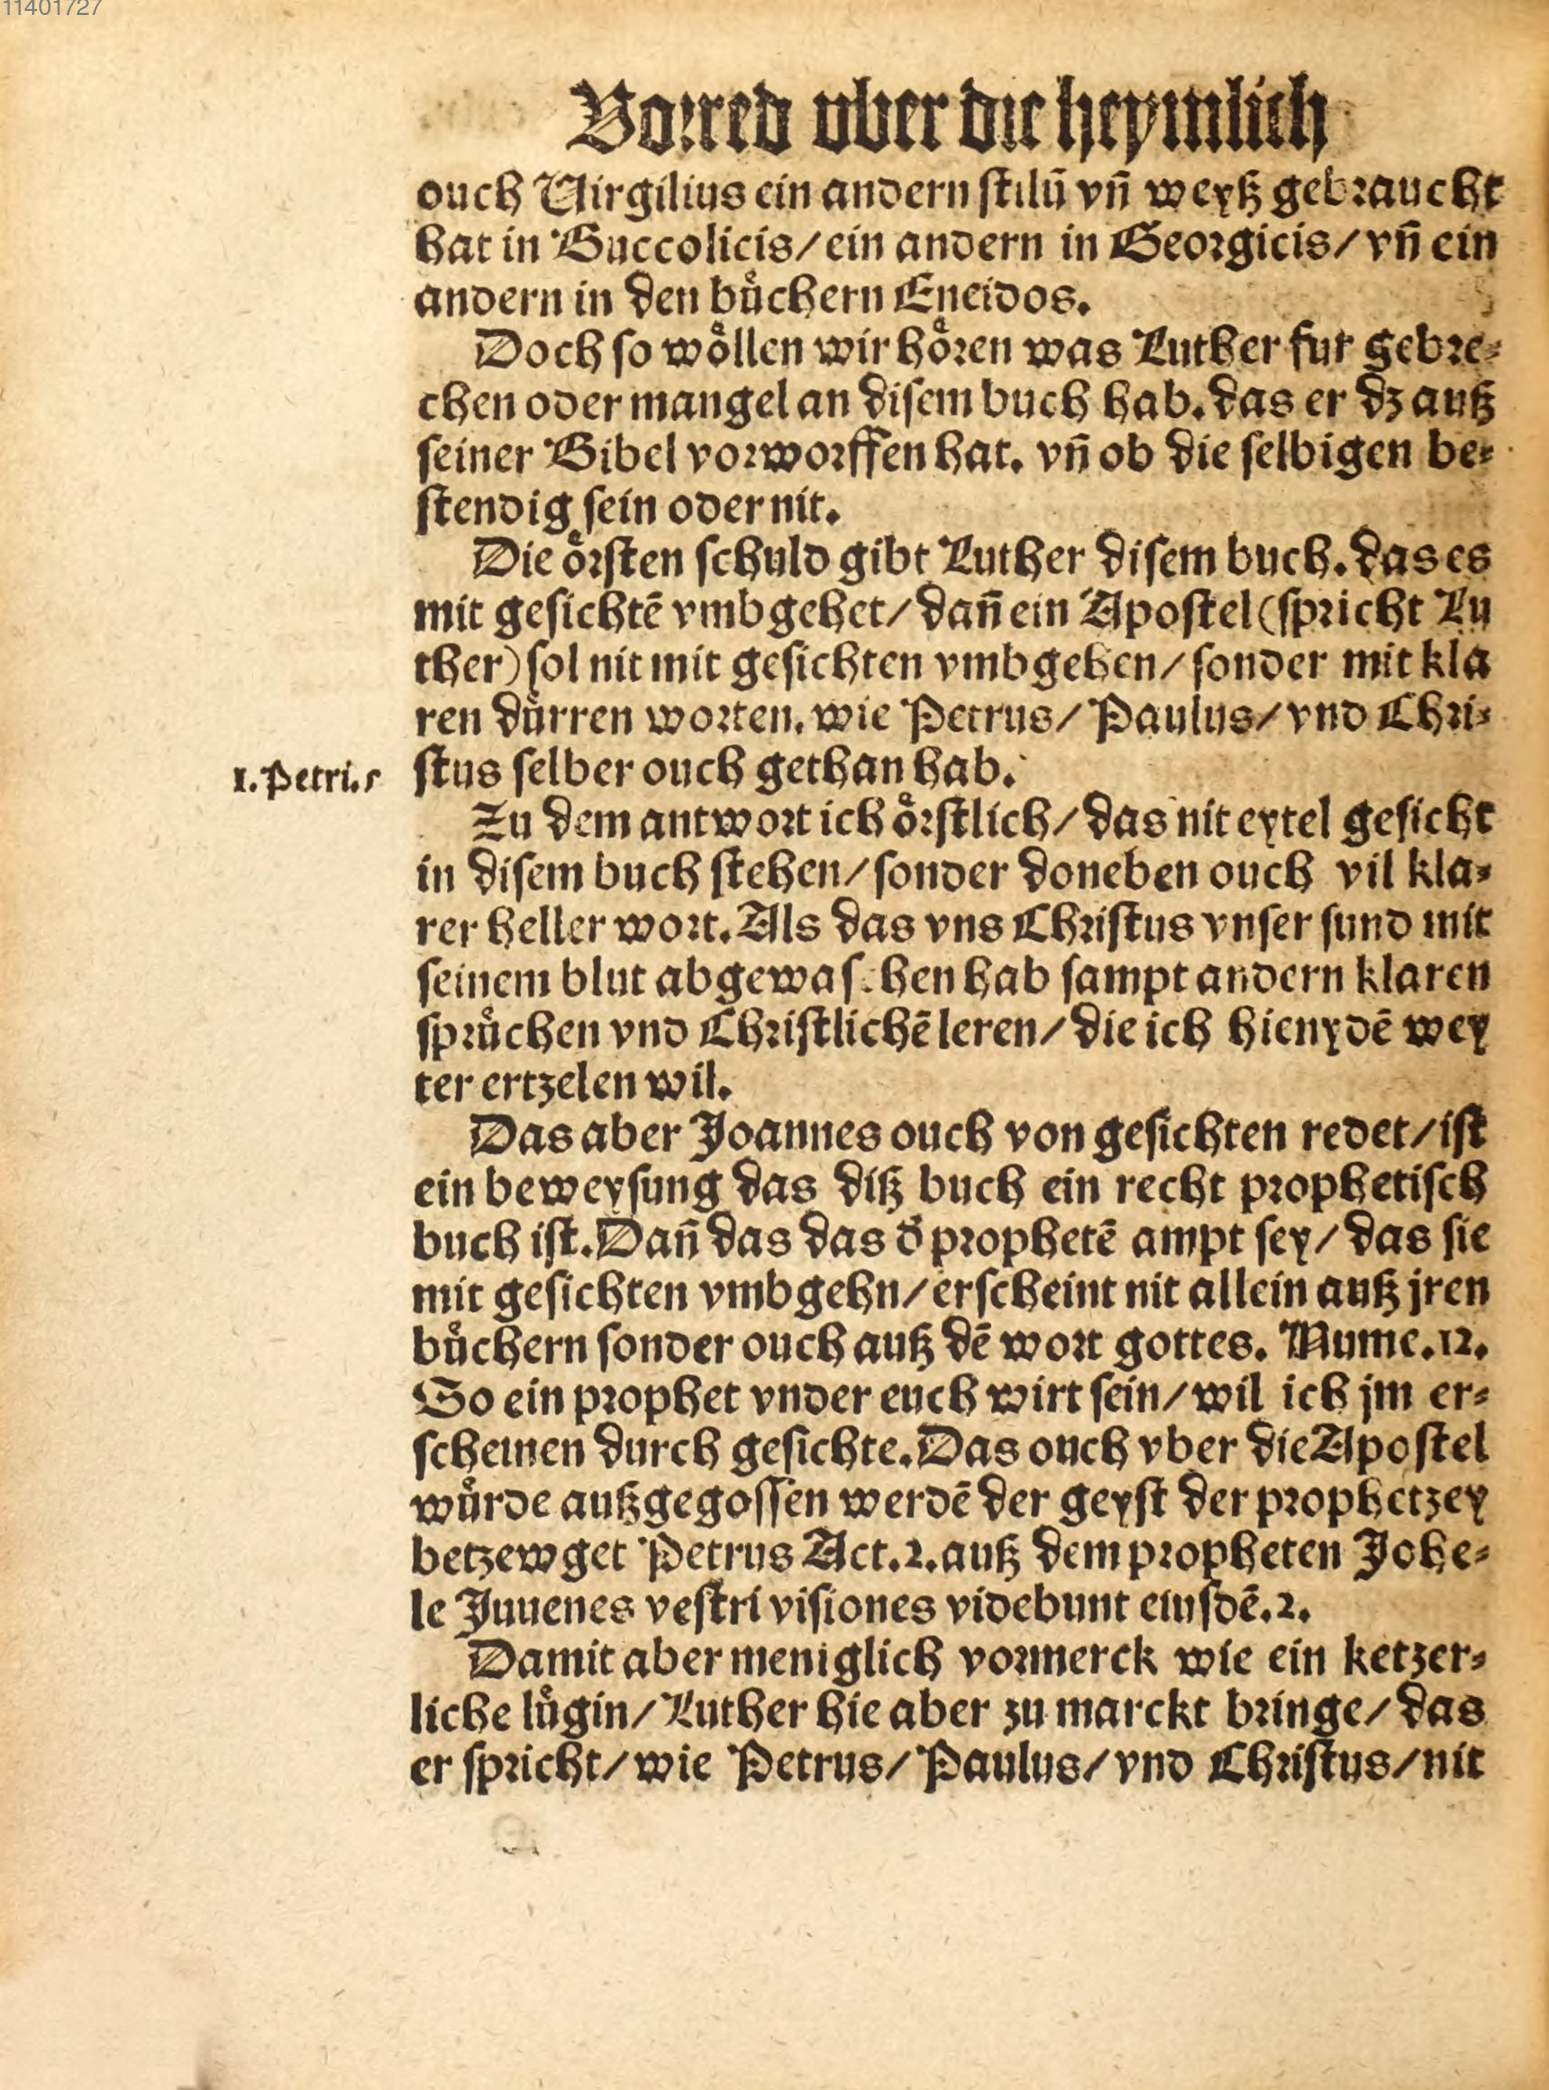 11401727
Vorred vber die heymlich
ouch Virgilius ein andern stilū vn̄ weyß gebraucht
hat in Buccolicis/ein andern in Georgicis/vn̄ ein
andern in den bůchern Eneidos.
Doch so wo̊llen wir ho̊ren was Luther fur gebre⸗
chen oder mangel an disem buch hab. das er dz auß
seiner Bibel vorworffen hat. vn̄ ob die selbigen be⸗
stendig sein oder nit.
Die o̊rsten schuld gibt Luther disem buch. das es
mit gesichtē vmbgehet/dan̄ ein Apostel (spricht Lu
ther) sol nit mit gesichten vmbgehen/sonder mit kla
ren důrren worten. wie Petrus/Paulus/vnd Chri⸗
1. Petri. 5
stus selber ouch gethan hab.
Zu dem antwort ich o̊rstlich/das nit eytel gesicht
in disem buch stehen/sonder doneben ouch vil kla⸗
rer heller wort. Als das vns Christus vnser sund mit
seinem blut abgewaschen hab sampt andern klaren
sprůchen vnd Christlichē leren/die ich hienydē wey
ter ertzelen wil.
Das aber Joannes ouch von gesichten redet/ist
ein beweysung das diß buch ein recht prophetisch
buch ist. Dan̄ das das d̓ prophetē ampt sey/das sie
mit gesichten vmbgehn/erscheint nit allein auß jren
bůchern sonder ouch auß dē wort gottes. Nume. 12.
So ein prophet vnder euch wirt sein/wil ich jm er⸗
scheinen durch gesichte. Das ouch vber die Apostel
wůrde außgegossen werdē der geyst der prophetzey
betzewget Petrus Act. 2. auß dem propheten Johe⸗
le Juuenes vestri visiones videbunt eiusdē. 2.
Damit aber meniglich vormerck wie ein ketzer⸗
liche lůgin/Luther hie aber zu marckt bringe/das
er spricht/wie Petrus/Paulus/vnd Christus/nit